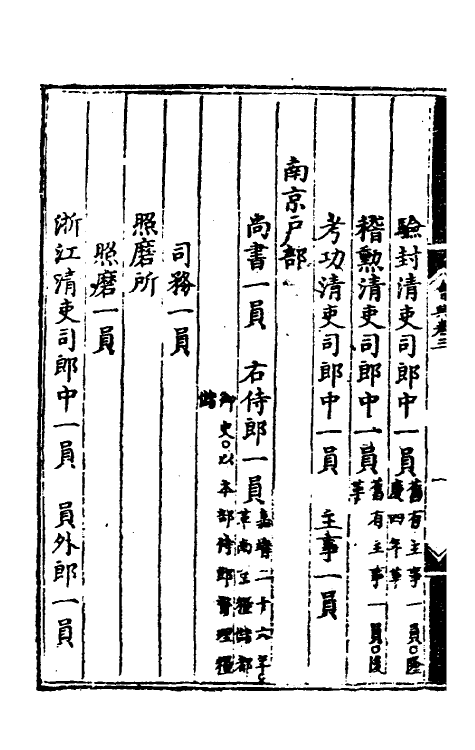 驗封清吏司郎中一員舊有主事一員○隆慶四年革
稽勲清吏司郎中一員舊有主事一員○隆革
考功清吏司郎中一員　主事一員
南京戶部
尚書一員　右侍郎一員嘉靖二十六年革南京糧儲都御史○以本部侍郎督理糧儲
司務一員
照磨所
照磨一員
浙江清吏司郎中一員　員外郎一員
會典卷三
一